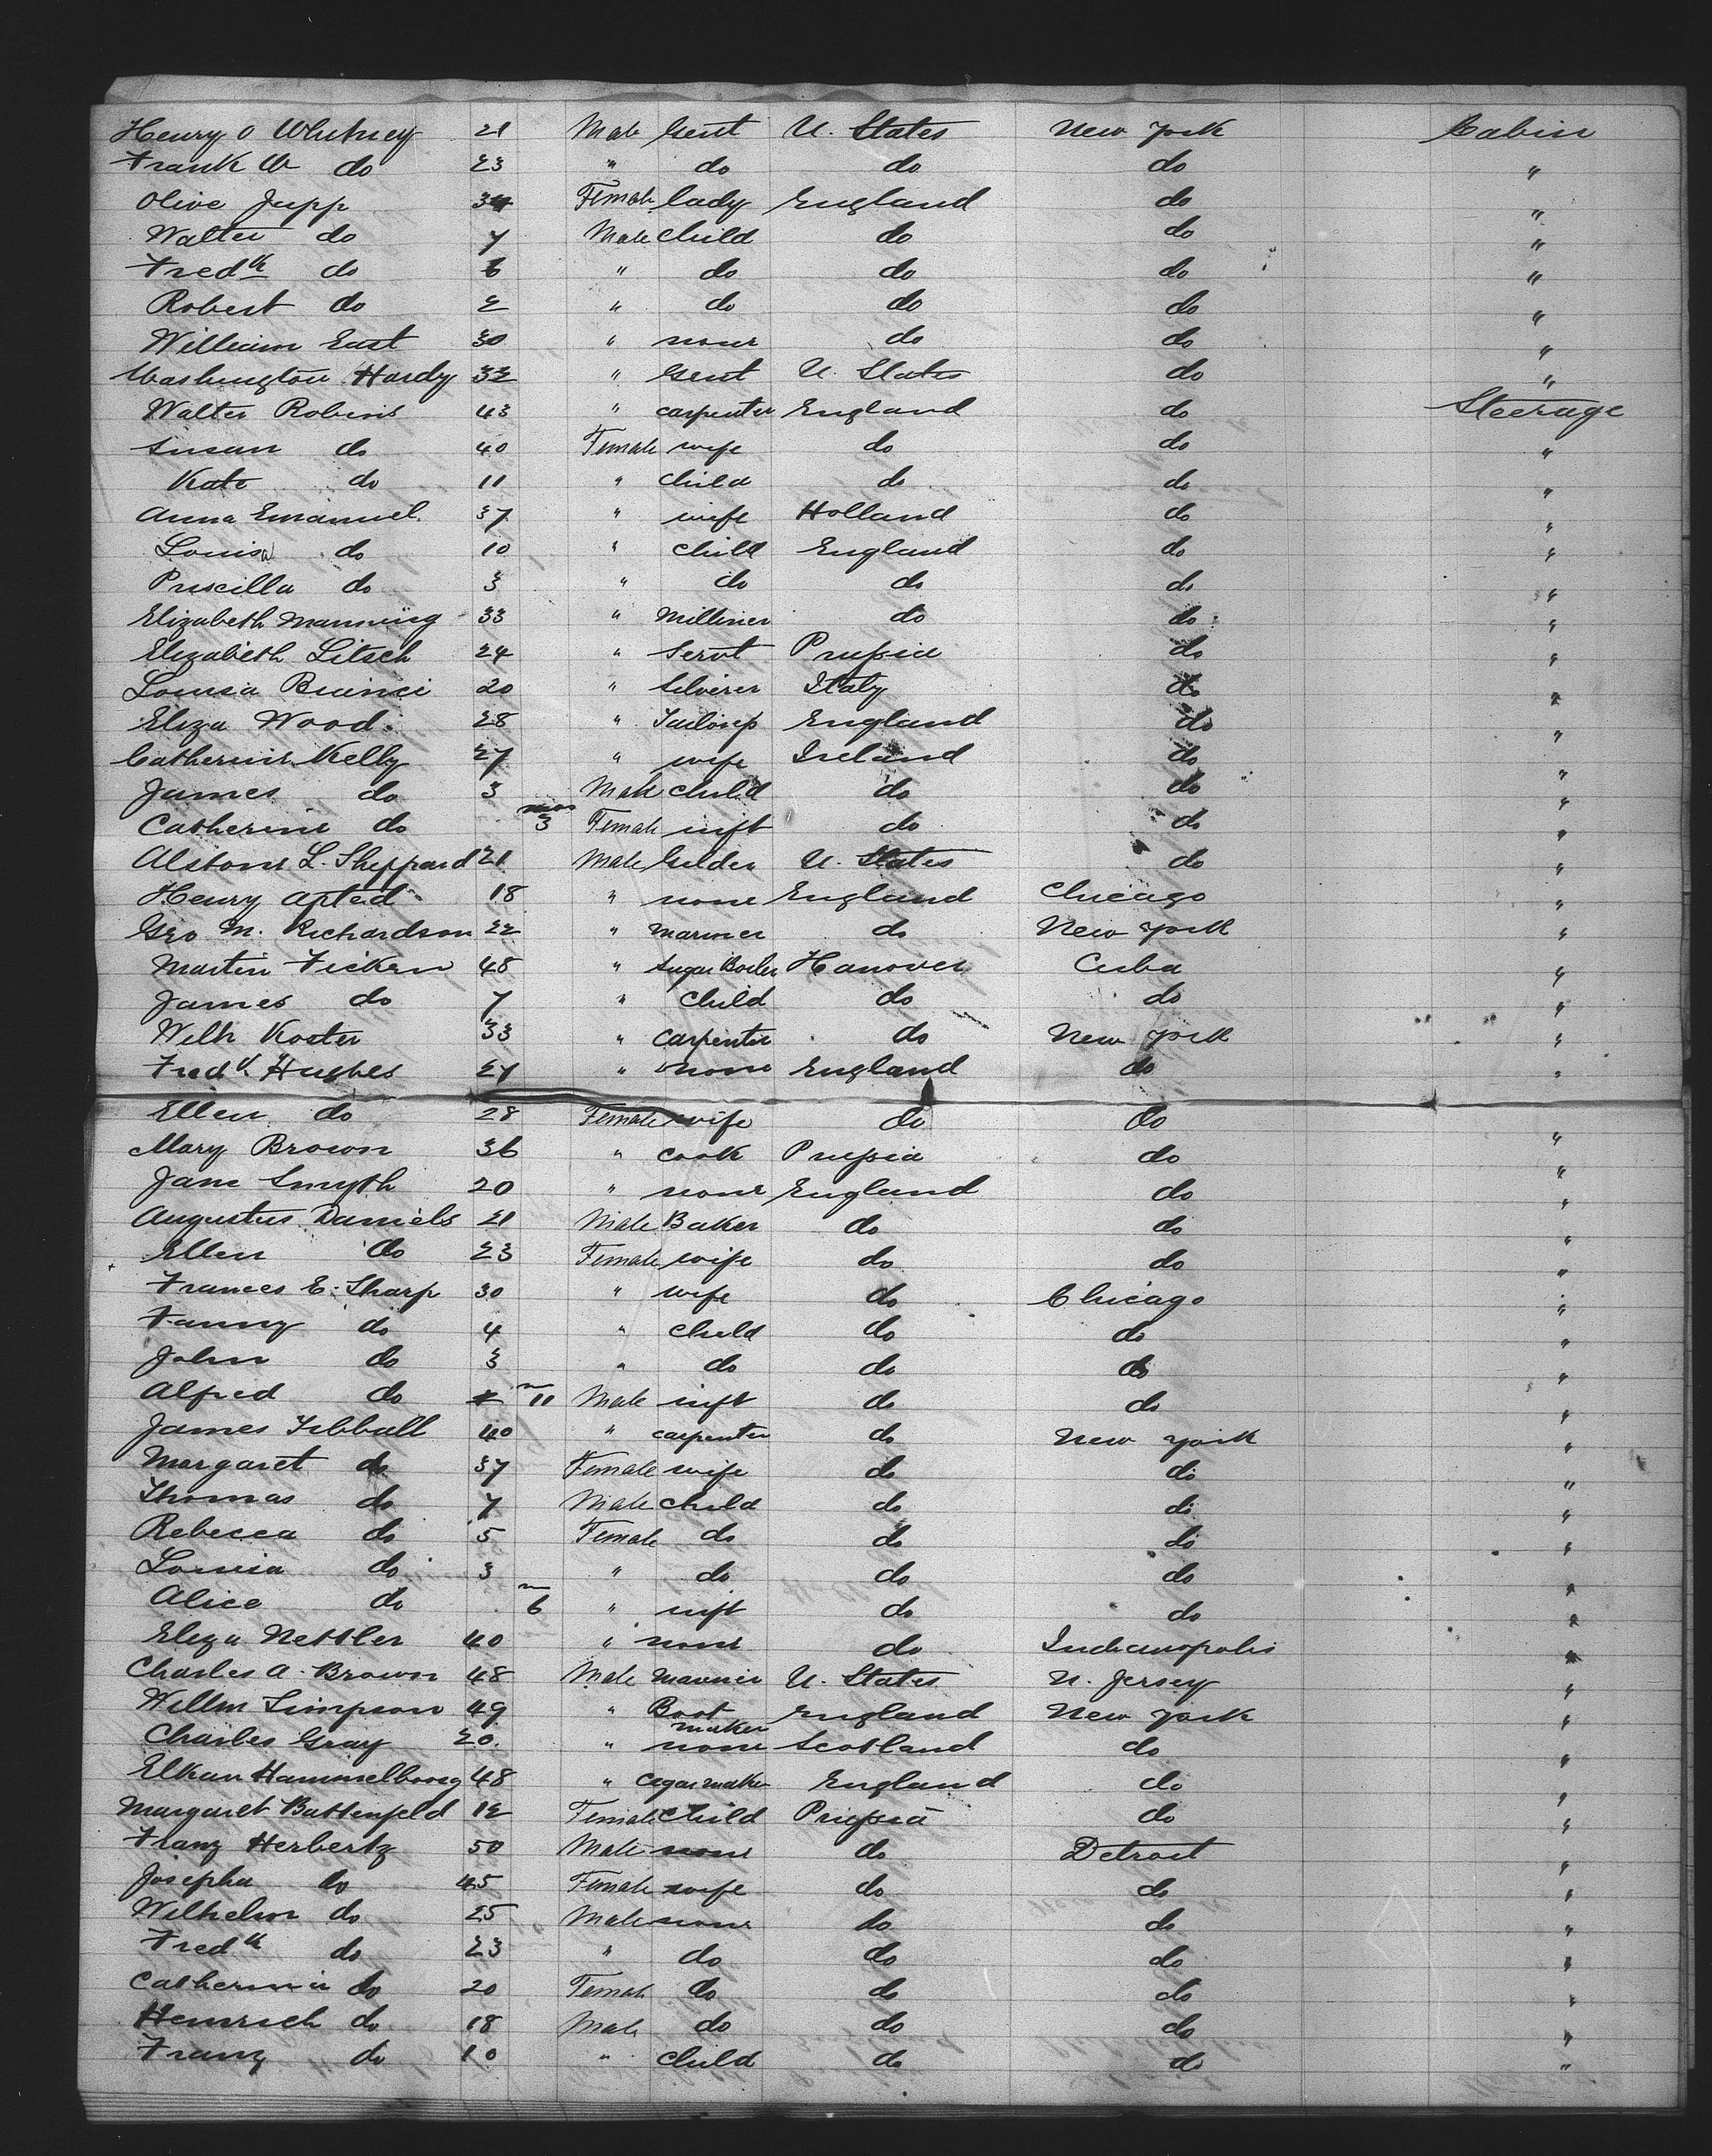 Henry O Whitney 21 Male Gent U. States New York Cabin
Frank W do 23 " do do do "
Olive Jupp 34 Female lady England do "
Walter do 7 Male child do do "
Fredk do 6 " do do do "
Robert do 2 " do do do "
William East 30 " none do do "
Washington Hardy 32 " Gent U. States do "
Walter Robins 43 " carpenter England do Steerage
Susan do 40 Female wife do do "
Kate do 11 " child do do "
Anna Emanuel 37 " wife Holland do "
Louisa do 10 " child England do "
Priscilla do 3 " do do do "
Elizabeth Manning 33 " Milliner do do "
Elizabeth Litsch 24 " Servt Prussia do "
Louisa 20 " Italy do "
Eliza Wood 28 " England do "
Catherine Kelly 27 " wife Ireland do "
James do 3 Male child do do "
Catherine do mos 3 Female inft do do "
Alstone L. Sheppard 21 Male Gilder U. States do "
Henry Apted 18 " none England Chicago "
Geo M. Richardson 22 " Mariner do New York "
Martin Ficken 48 " Sugar Boiler Hanover Cuba "
James do 7 " child do do "
Welh Koster 33 " Carpenter do New York "
Fredk Hughes 27 " none England do "
Ellen do 28 Female wife do do "
Mary Brown 36 " cook Prussia do "
Jane Smyth 20 " none England do "
Augustus Daniels 21 Male Baker do do "
Ellen do 23 Female wife do do "
Frances E. Sharp 30 " wife do Chicago "
Fanny do 4 " child do do "
John do 3 " do do do "
Alfred do m 11 Male inft do do "
James Tibball 40 " carpenter do New York "
Margaret do 37 Female wife do do "
Thomas do 7 Male child do do "
Rebecca do 5 Female do do do "
Louisa do 3 " do do do "
Alice do m 6 " inft do do "
Eliza Nettler 40 " none do Indianopolis "
Charles A. Brown 48 Male Mariner U. States N. Jersey "
Willm Simpson 49 " Boot maker England New York "
Charles Gray 20 " none Scotland do "
Elkan Hammelboorg 48 " Cigar maker England do "
Margaret Battenfeld 12 Female child Prussia do "
Franz Herbertz 50 Male none do Detroit "
Josepha do 45 Female wife do do "
Wilhelm do 25 Male none do do "
Fredk do 23 " do do do "
Catherine do 20 Female do do do "
Heinrich do 18 Male do do do "
Franz do 10 " child do do "